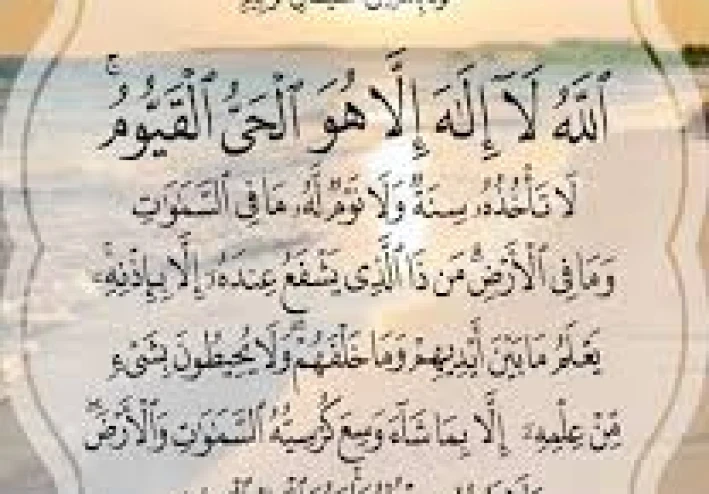 ٱللَّهُ لَآ إِلَٰهَ إِلَّا هُوَ ٱلْحَىُّ ٱلْقَيُّومُ ۚ
لَا تَأْخُذُهُۥ سِنَةٌ وَلَا نَوْمٌ لَّهُۥ مَا فِى ٱلسَّمَٰوَٰتِ
وَمَا فِى ٱلْأَرْضِ مَن ذَا ٱلَّذِى يَشْفَعُ عِندَهُۥٓ إِلَّا بِإِذْنِهِۦ ۚ
يَعْلَمُ مَا بَيْنَ أَيْدِيهِمْ وَمَا خَلْفَهُمْ ۖ وَلَا يُحِيطُونَ بِشَىْءٍ
مِّنْ عِلْمِهِۦٓ إِلَّا بِمَا شَآءَ وَسِعَ كُرْسِيُّهُ ٱلسَّمَٰوَٰتِ وَٱلْأَرْضَ ۖ